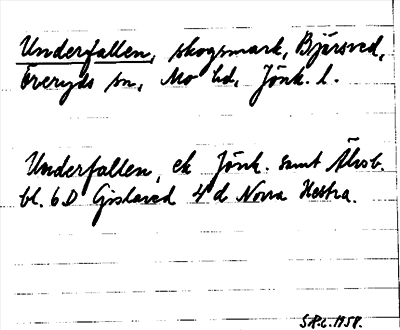 Underfallen, skogsmark, Bjärsved,
Öreryds sn, Mo hd, Jönk. l.
Underfallen, ek Jönk. samt Älvsb.
bl. 6D Gislaved 4 d Norra Hestra.
S.R-t. 1958.